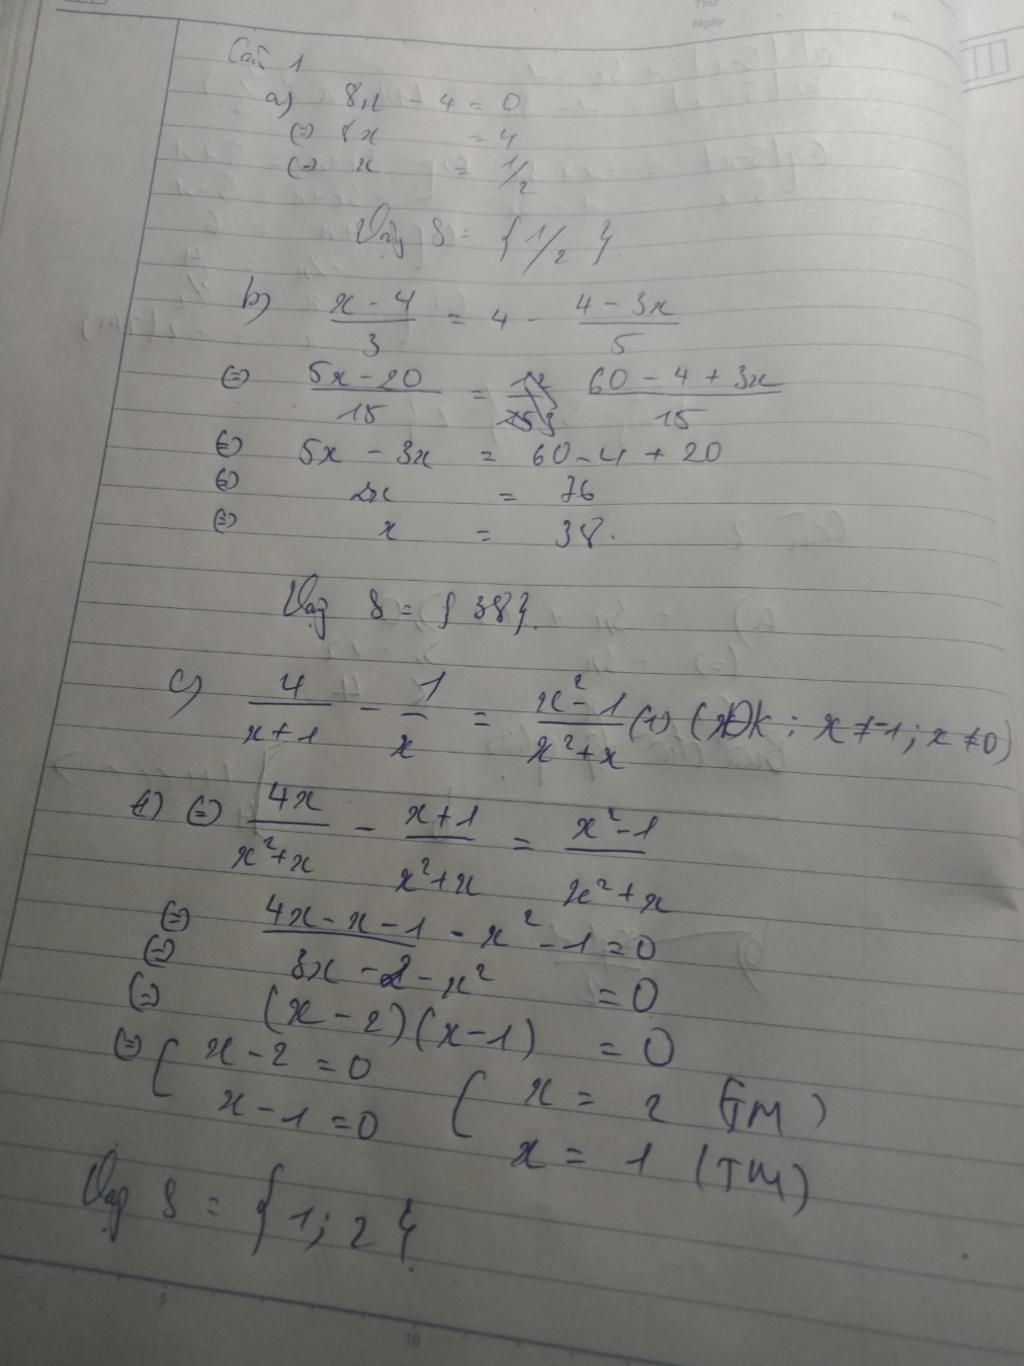 Thứ
Ngày
No.
Câu 1
a) 8x - 4 = 0
(=) 8x = 4
(=) x = 1/2
Vậy S = { 1/2 }.
b) (x - 4)/3 = 4 - (4 - 3x)/5
(=) (5x - 20)/15 = (60 - 4 + 3x)/15
(=) 5x - 3x = 60 - 4 + 20
(=) 2x = 76
(=) x = 38.
Vậy S = { 38 }.
c) 4/(x + 1) - 1/x = (x² - 1)/(x² + x) (1) (ĐK : x ≠ -1 ; x ≠ 0)
(1) (=) 4x/(x² + x) - (x + 1)/(x² + x) = (x² - 1)/(x² + x)
(=) 4x - x - 1 - x² - 1 = 0
(=) 3x - 2 - x² = 0
(=) (x - 2)(x - 1) = 0
(=) [ x - 2 = 0 [ x = 2 (TM)
x - 1 = 0 x = 1 (TM)
Vậy S = { 1 ; 2 }
5
10